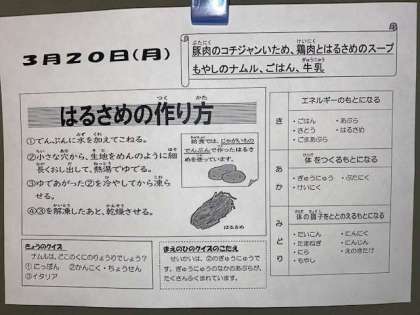 3月20日(月)
豚肉のコチジャンいため、鶏肉とはるさめのスープ
もやしのナムル、ごはん、牛乳
はるさめの作り方
①でんぷんに水を加えてこねる。
②小さな穴から、生地をめんのように細
長くおし出して、熱湯でゆでる。
③ゆであがった②を冷やしてから凍ら
せる。
④③を解凍したあと、乾燥させる。
給食では、じゃがいもの
でんぷんで作ったはるさ
めを使っています。
はるさめ
きょうのクイズ
ナムルは、どこのくにのりょうりでしょう?
①にっぽん ②かんこく・ちょうせん
③イタリア
まえのひのクイズのこたえ
せいかいは、②のぎゅうにゅうで
す。ぎゅうにゅうのなかのあぶらが、
たくさんふくまれています。
エネルギーのもとになる
き
・ごはん ・あぶら
・さとう ・はるさめ
・ごまあぶら
体をつくるもとになる
あか
・ぎゅうにゅう ・ぶたにく
・けいにく
体の調子をととのえるもとになる
みどり
・だいこん ・にんにく
・たまねぎ ・にんじん
・にら ・えのきたけ
・もやし